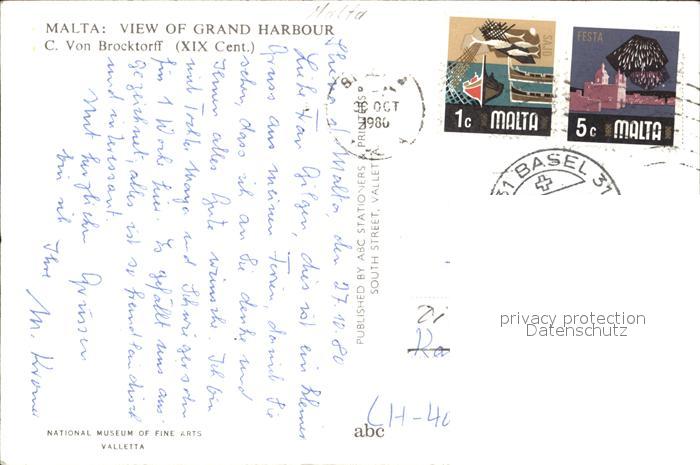 Malta
MALTA: VIEW OF GRAND HARBOUR
C. Von Brocktorff (XIX Cent.)
Malta, den 27.10.80
Liebe Frau Gilgen, dies ist ein kleines
Gruss aus meinen Ferien, damit Sie
sehen, dass ich an Sie denke und
Ihnen alles Gute wünsche. Ich bin
mit Tochter Margr und Schwiegersohn
für 1 Woche hier. Es gefällt uns aus-
gezeichnet, alles ist so fremdländisch
und interessant.
Mit herzlichen Grüssen
bin ich Ihre
M. Kromer
NATIONAL MUSEUM OF FINE ARTS
VALLETTA
PUBLISHED BY ABC STATIONERS & PRINTERS
SOUTH STREET, VALLETTA
abc
30 OCT
1980
SAJD
1c MALTA
FESTA
5c MALTA
31 BASEL 31
CH-40
privacy protection
Datenschutz